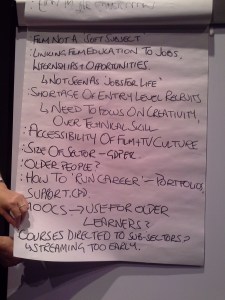 : FILM NOT A SOFT SUBJECT
: LINKING FILM EDUCATION TO JOBS,
INTERNSHIPS + OPPORTUNITIES.
↳ NOT SEEN AS 'JOBS FOR LIFE'
: SHORTAGE OF ENTRY LEVEL RECRUITS
↳ NEED TO FOCUS ON CREATIVITY,
OVER TECHNICAL SKILL
: ACCESSIBILITY OF FILM + TV CULTURE
: SIZE OF SECTOR —
: OLDER PEOPLE?
: HOW TO 'RUN CAREER' — PORTFOLIO,
SUPPORT. CPD
MOOCS → USE FOR OLDER
LEARNERS?
COURSES DIRECTED TO SUB-SECTORS?
↳ STREAMING TOO EARLY.